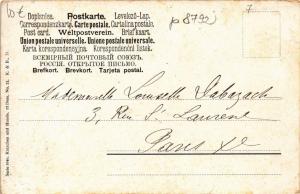 10€
p8792
7
Dopisnice. Postkarte. Levelező-Lap.
Correspondenzkarte. Carte postale. Cartolina postale.
Post card. Weltpostverein. Briefkaart.
Union postale universelle. Unione postale universale.
Karta korespondencyjna. Korespondenční lístek.
ВСЕМІРНЫЙ ПОЧТОВЫЙ СОЮЗЪ.
РОССІЯ. ОТКРЫТОЕ ПИСЬМО.
Brefkort. Brevkort. Tarjeta postal.
Mademoiselle
3, Rue St Laurent
Paris Xe